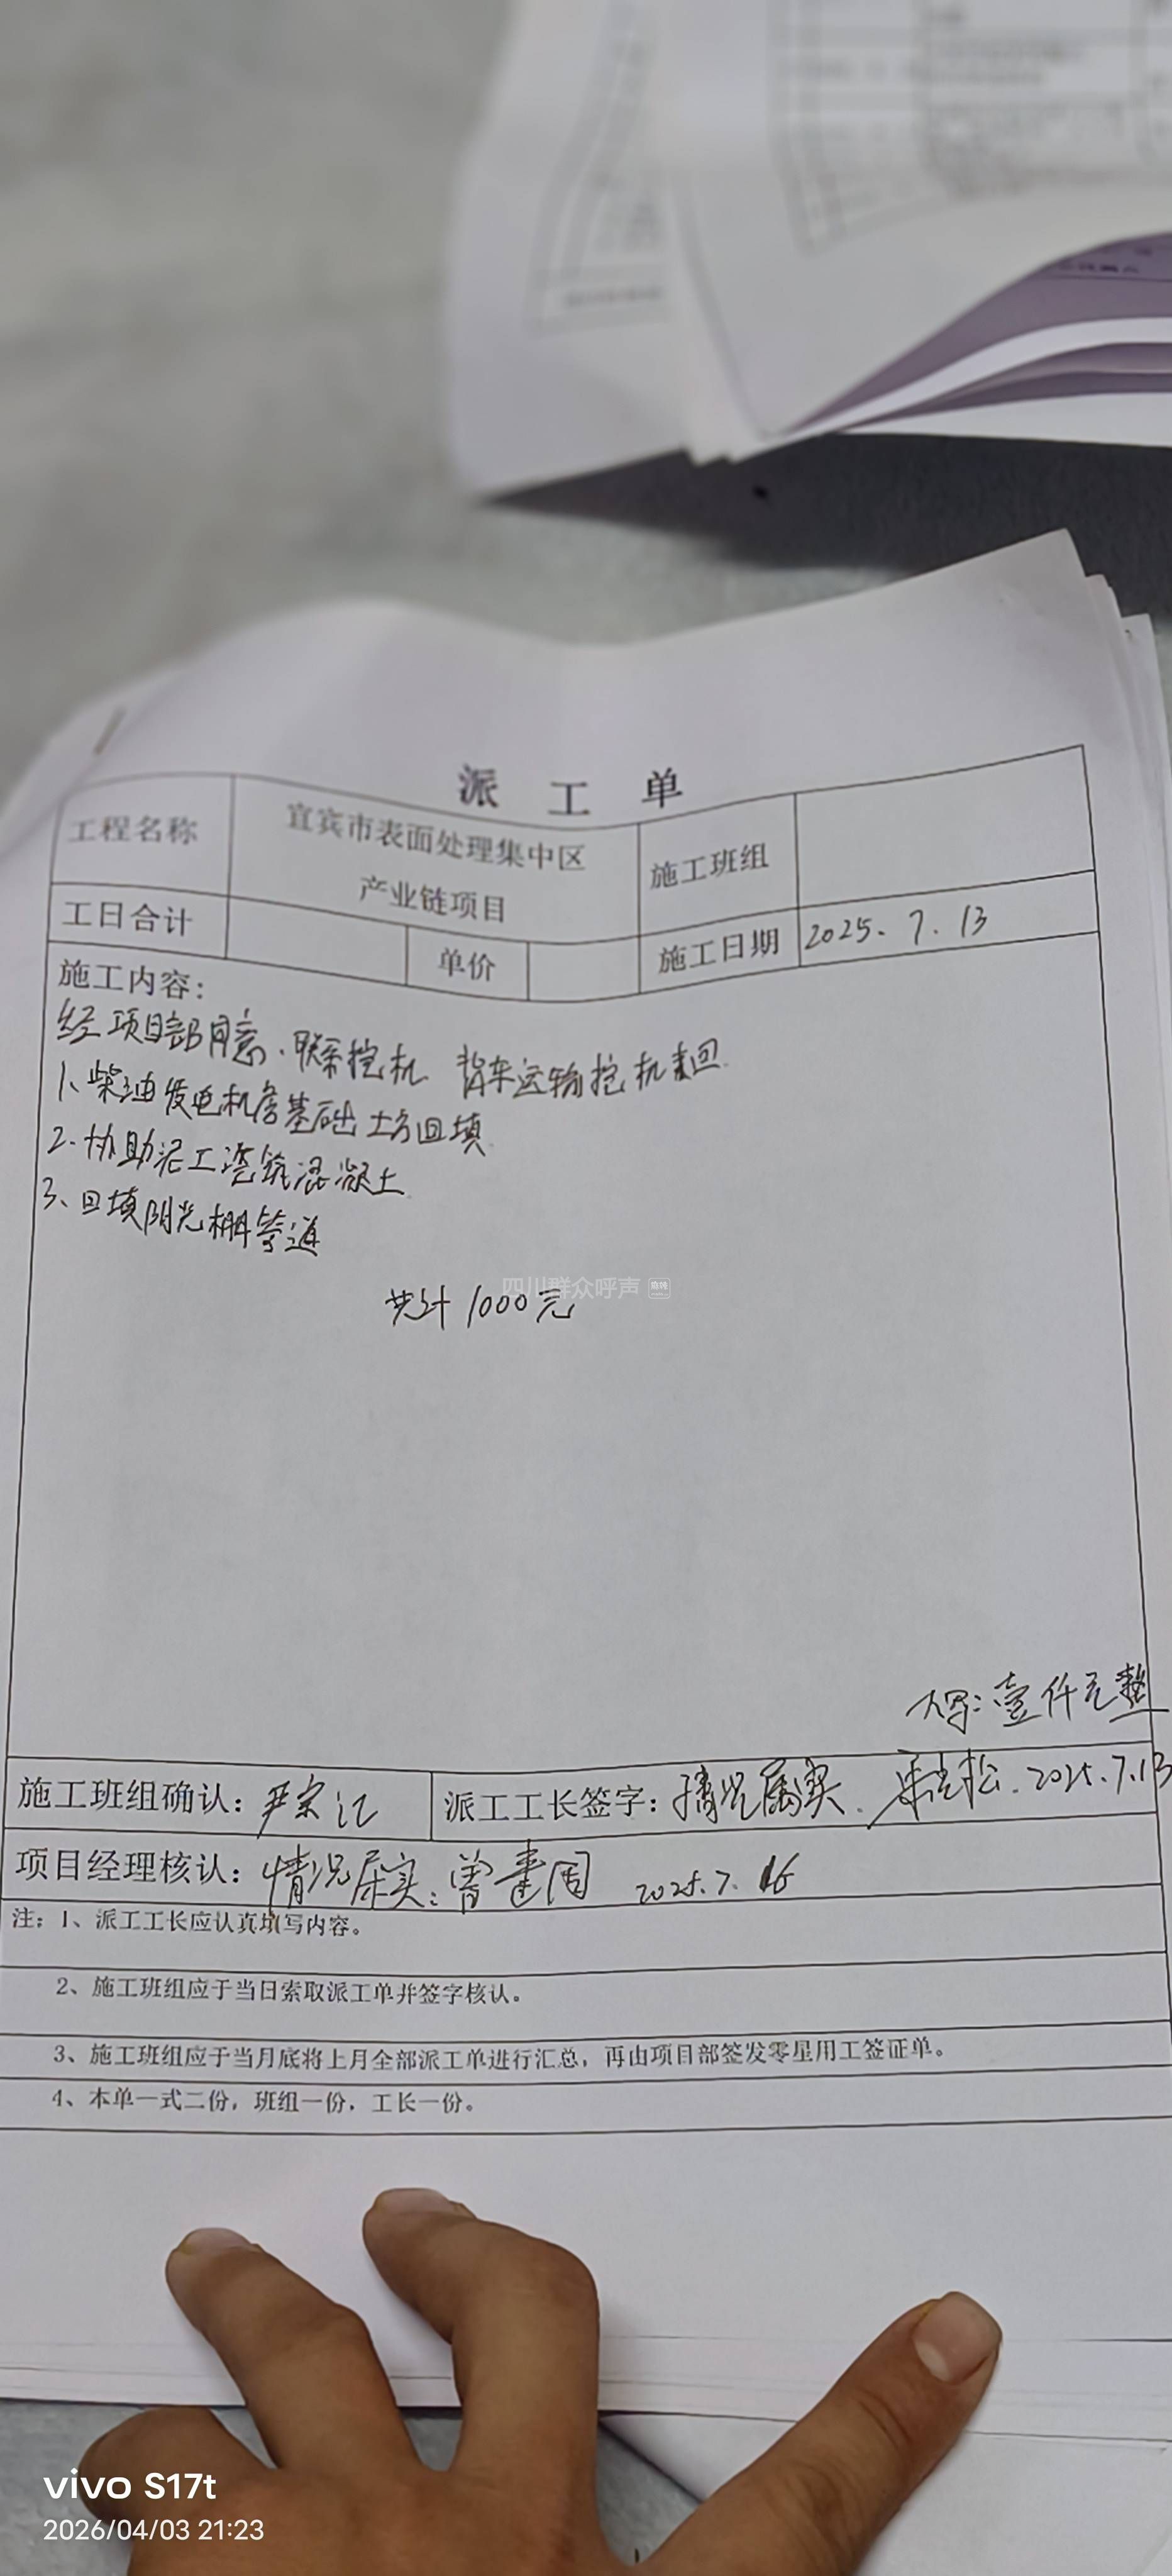 派 工 单
工程名称
宜宾市表面处理集中区
产业链项目
施工班组
工日合计
单价
施工日期
2025.7.13
施工内容:
经项目部同意.联系挖机 背车运输挖机来回
1、柴油发电机房基础土方回填
2.协助泥工浇筑混凝土
3、回填阳光棚管道
四川群众呼声
共计1000元
大写:壹仟元整
施工班组确认:严宗江
派工工长签字:情况属实. 2025.7.13
项目经理核认:情况属实:曾建国 2025.7.16
注:1、派工工长应认真填写内容。
2、施工班组应于当日索取派工单并签字核认。
3、施工班组应于当月底将上月全部派工单进行汇总,再由项目部签发零星用工签证单。
4、本单一式二份,班组一份,工长一份。
vivo S17t
2026/04/03 21:23